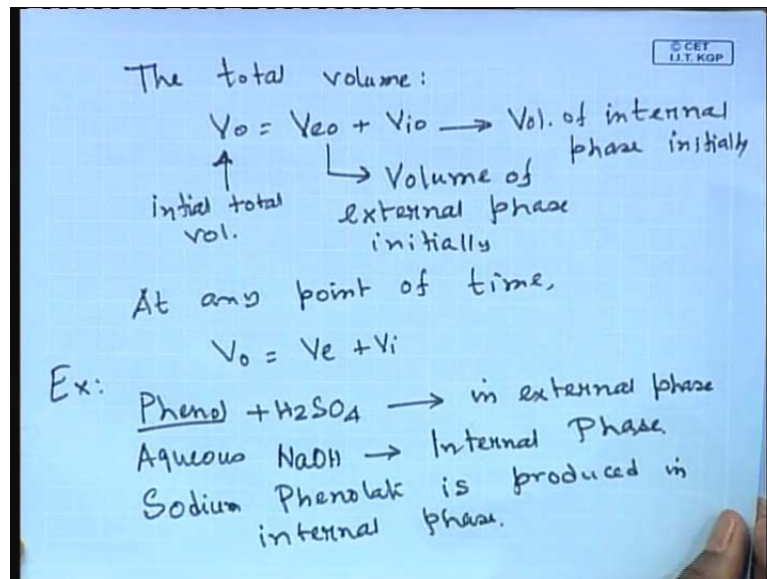 © CET
I.I.T. KGP
The total volume:
Vo = Veo + Vio → Vol. of internal
phase initially
↑
intial total
vol.
↳ Volume of
external phase
initially
At any point of time,
Vo = Ve + Vi
Ex:
Phenol + H2SO4 → in external phase
Aqueous NaOH → Internal Phase.
Sodium Phenolak is produced in
internal phase.